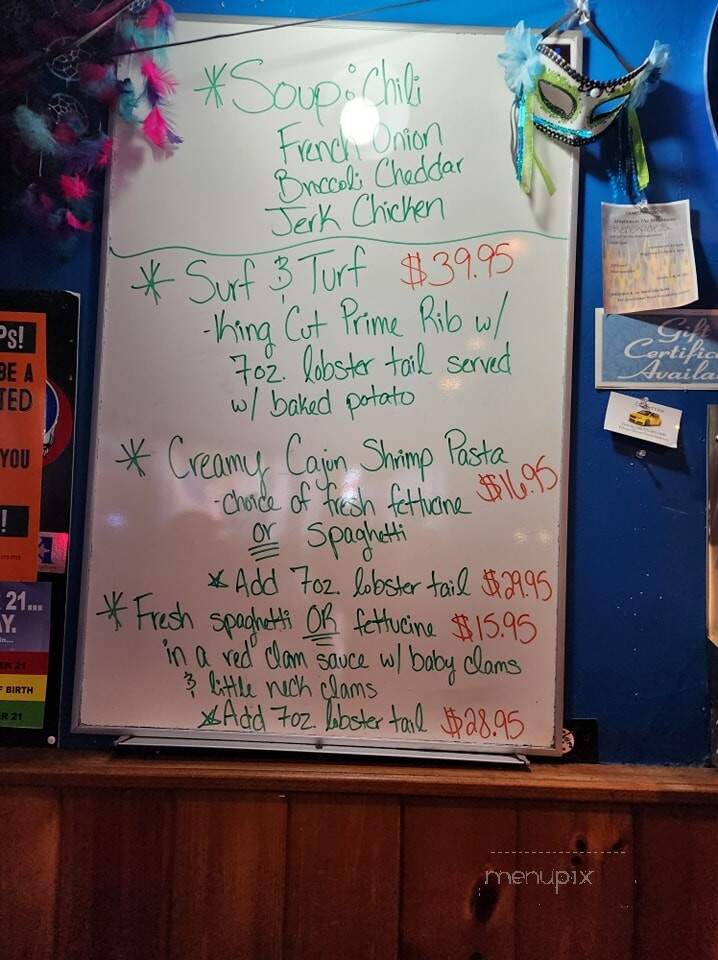 *Soup & Chili
French Onion
Broccoli Cheddar
Jerk Chicken
* Surf & Turf $39.95
-King Cut Prime Rib w/
7oz. lobster tail served
w/ baked potato
* Creamy Cajun Shrimp Pasta
$16.95
-choice of fresh fettucine
OR spaghetti
* Add 7oz. lobster tail $29.95
* Fresh spaghetti OR fettucine $15.95
in a red clam sauce w/ baby clams
& little neck clams
* Add 7oz. lobster tail $28.95
Ps!
BE A
TED
YOU
!
21...
Y.
F BIRTH
R 21
Gift
Certific
Availa
menupix